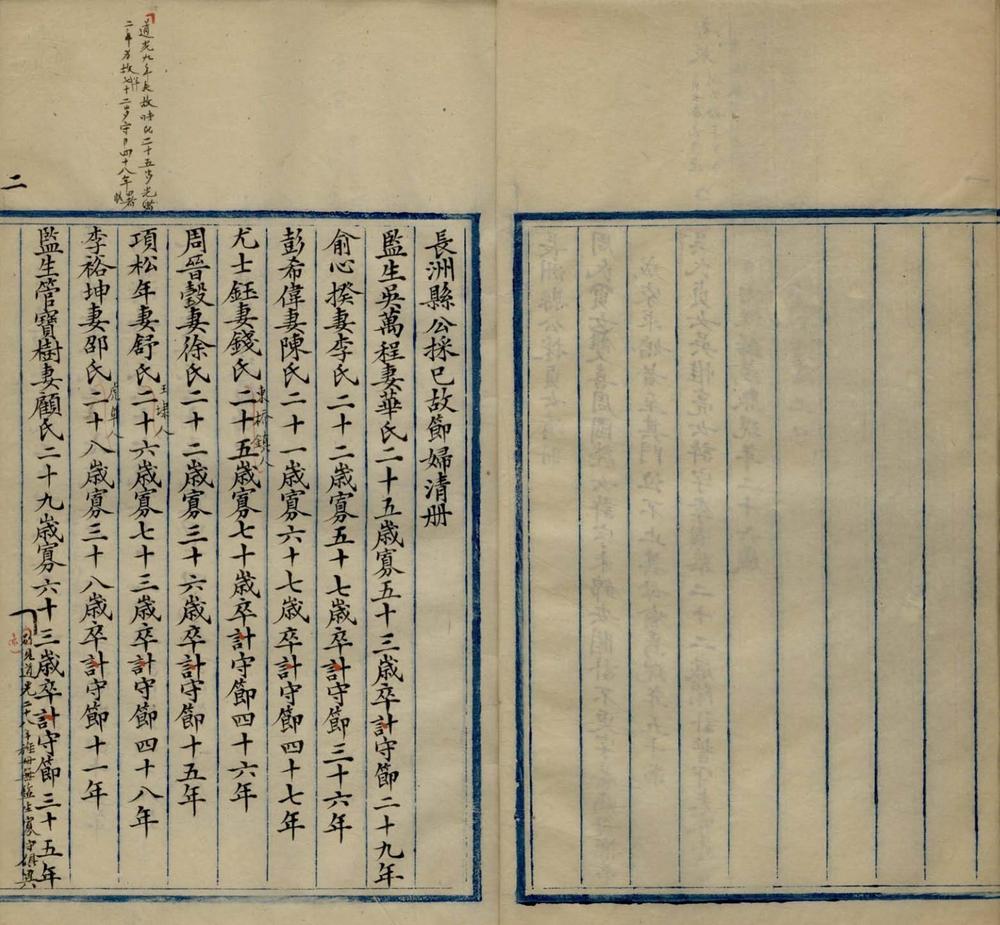 長洲縣公採已故節婦清册
監生吳萬程妻華氏二十五歲寡五十三歲卒計守節二十九年
俞心揆妻李氏二十二歲寡五十七歲卒計守節三十六年
彭希偉妻陳氏二十一歲寡六十七歲卒計守節四十七年
東橋鎮人
尤士鈺妻錢氏二十五歲寡七十歲卒計守節四十六年
周晉瑴妻徐氏二十二歲寡三十六歲卒計守節十五年
王埭人
項松年妻舒氏二十六歲寡七十三歲卒計守節四十八年
虎阜人
李裕坤妻邵氏二十八歲寡三十八歲卒計守節十一年
監生管寶樹妻顧氏二十九歲寡六十三歲卒計守節三十五年
道光九年夫故時氏二十五歲光緒
二年身故七十二歲守節四十八年
二